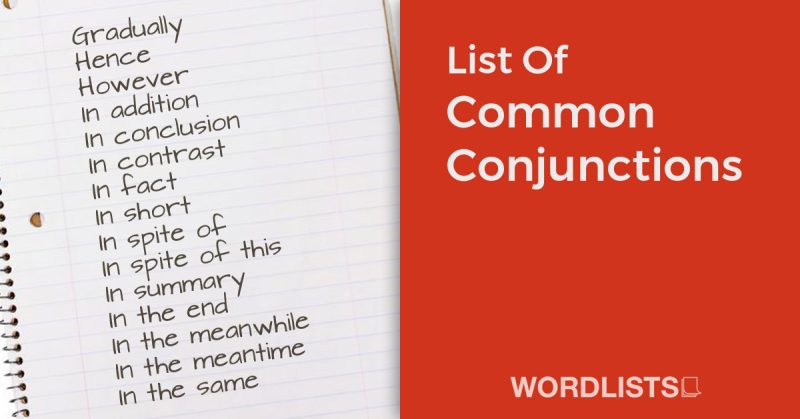 Gradually
Hence
However
In addition
In conclusion
In contrast
In fact
In short
In spite of
In spite of this
In summary
In the end
In the meanwhile
In the meantime
In the same
List Of
Common
Conjunctions
WORDLISTS